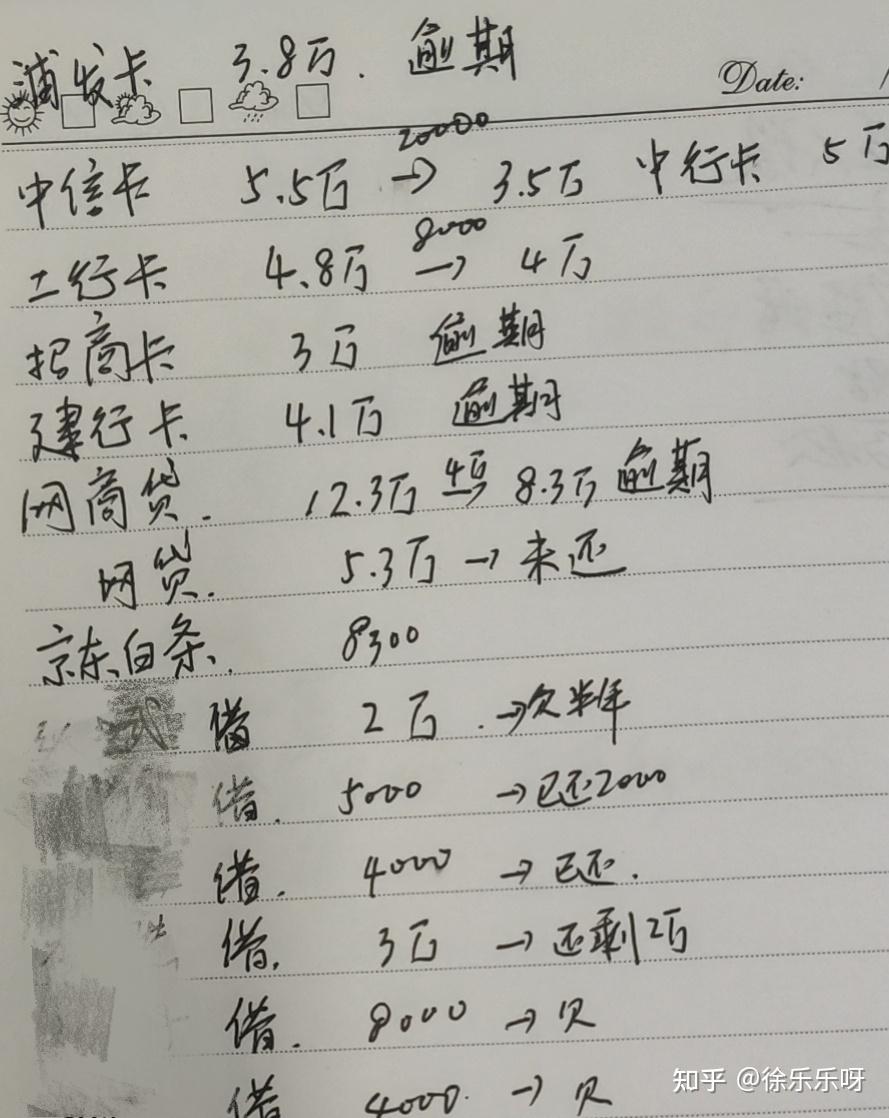 浦发卡 3.8万. 逾期
Date:
20000
中信卡 5.5万 → 3.5万 中行卡 5万
8000
工行卡 4.8万 → 4万
招商卡 3万 逾期
建行卡 4.1万 逾期
4万
网商贷. 12.3万 → 8.3万 逾期
网贷. 5.3万 → 未还
京东白条. 8300
借 2万 . →欠半年
借. 5000 →已还2000
借. 4000 → 已还.
借. 3万 → 还剩2万
借. 8000 → 欠
借 4000. → 欠
知乎 @徐乐乐呀